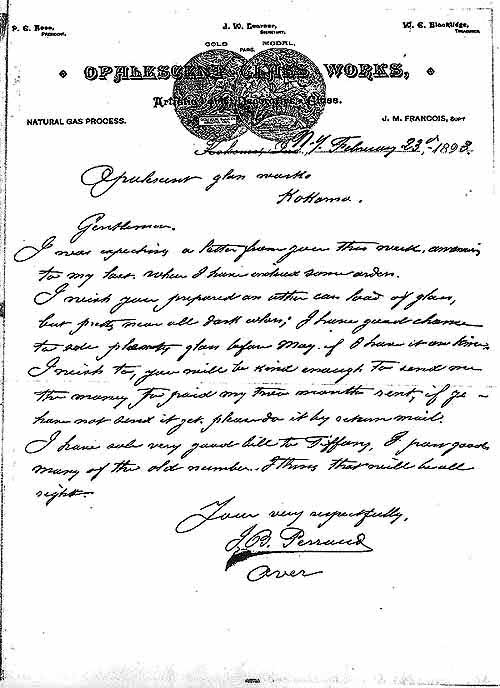 P. E. Hoss,
PRESIDENT.
J. W. Learner,
SECRETARY.
W. E. Blacklidge,
TREASURER.
GOLD MEDAL,
PARIS,
OPALESCENT GLASS WORKS,
NATURAL GAS PROCESS.
J. M. FRANCOIS, SUPT
Kokomo, Ind., N.Y. February 23rd, 1893.
Opalescent glass works
Kokomo.
Gentlemen.
I was expecting a letter from your this week,
to my last. when I have ordered some orders.
I wish your prepared an other car load of glass,
but pretty near all dark colors; I have good chance
to sole plenty glass before May. if I have it on time.
I wish to, you will be kind enough to send me
the money for paid my two month rent, if ye
have not send it yet. please do it by return mail.
I have sole very good bill to Tiffany, good
many of the old number. I think that will be all
right.
Your very respectfully,
J. B. Perraud
Over